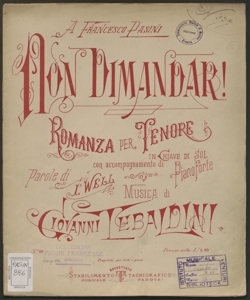 A FRANCESCO PASINI
NON DIMANDAR!
ROMANZA PER TENORE
IN CHIAVE DI SOL
con accompagnamento di Pianoforte
Parole di
I. WELL
MUSICA di
GIOVANNI LEBALDINI
STABILIMENTO TACHIGRAFICO
PADOVA
MUSICALE